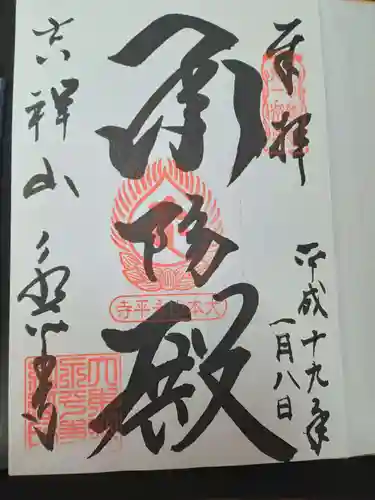 奉拝
平成十九年
一月八日
承陽殿
大本山永平寺
吉祥山永平寺